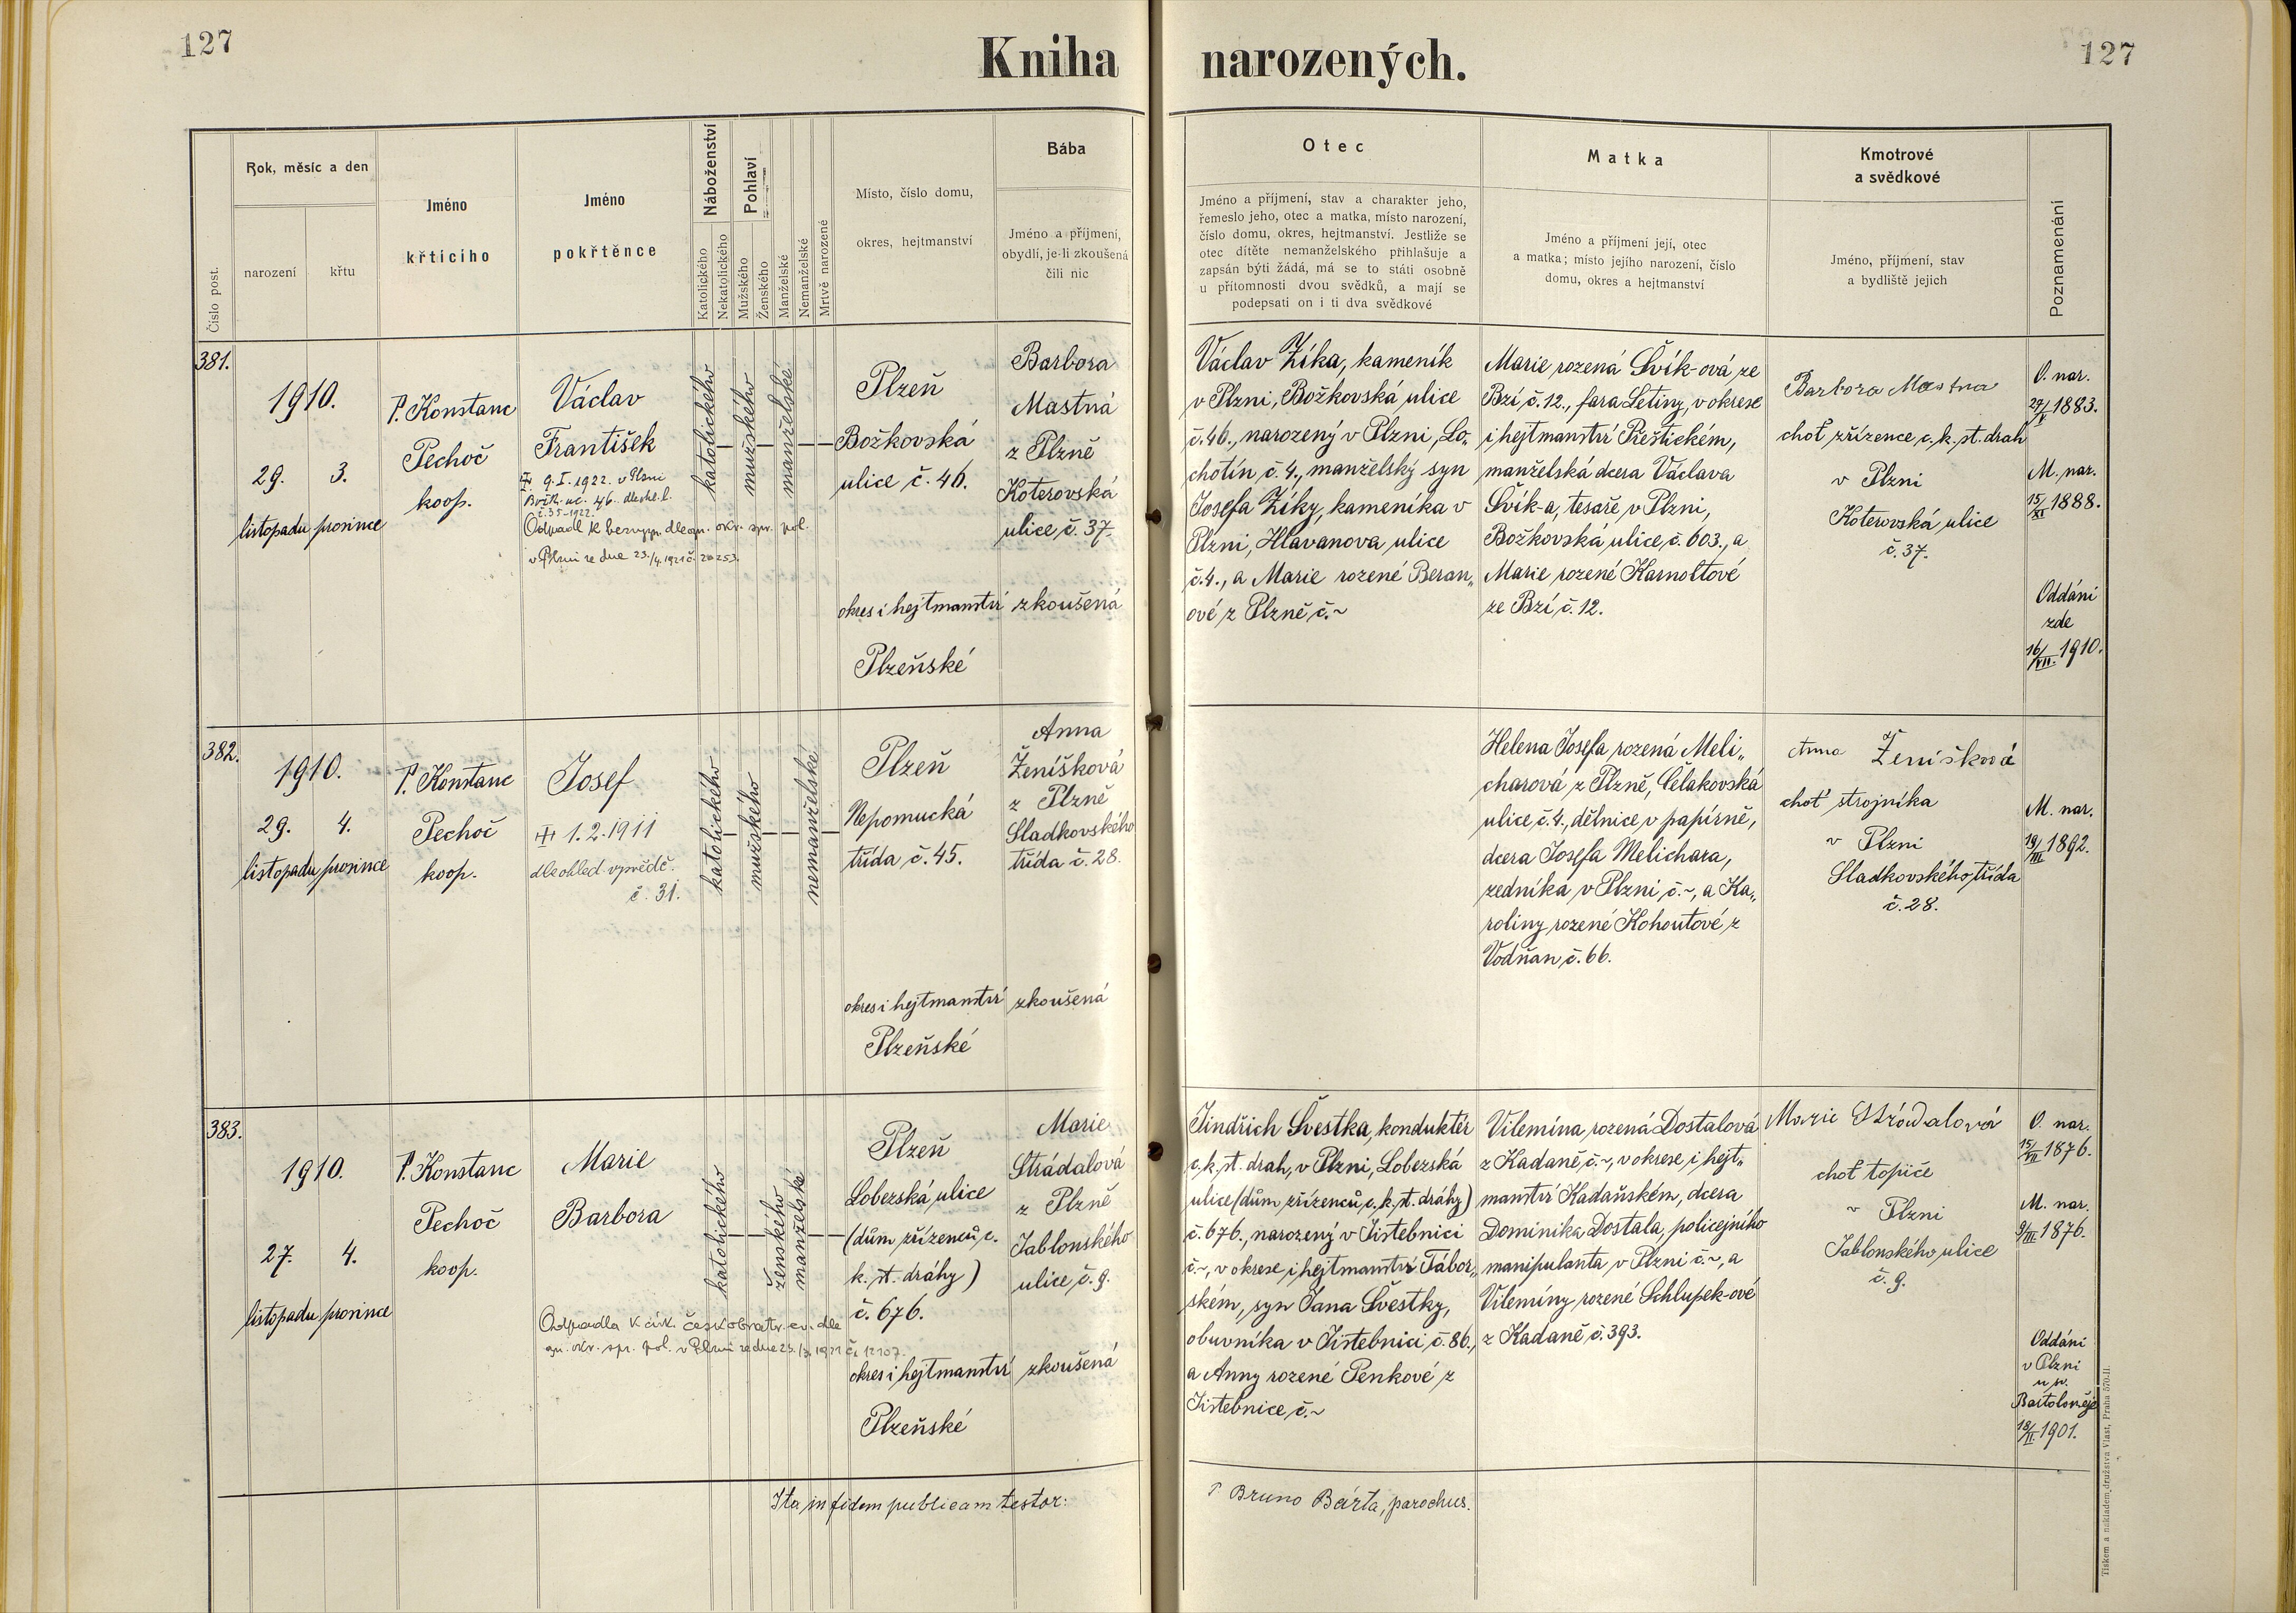 127
Kniha narozených.
127
Číslo post.
Rok, měsíc a den
narození
křtu
Jméno
křtícího
Jméno
pokřtěnce
Náboženství
Katolického
Nekatolického
Pohlaví
Mužského
Ženského
Manželské
Nemanželské
Mrtvě narozené
Místo, číslo domu,
okres, hejtmanství
Bába
Jméno a příjmení,
obydlí, je-li zkoušená
čili nic
Otec
Jméno a příjmení, stav a charakter jeho,
řemeslo jeho, otec a matka, místo narození,
číslo domu, okres, hejtmanství. Jestliže se
otec dítěte nemanželského přihlašuje a
zapsán býti žádá, má se to státi osobně
u přítomnosti dvou svědků, a mají se
podepsati on i ti dva svědkové
Matka
Jméno a příjmení její, otec
a matka; místo jejího narození, číslo
domu, okres a hejtmanství
Kmotrové
a svědkové
Jméno, příjmení, stav
a bydliště jejich
Poznamenání
381.
1910.
29. 3.
listopadu prosince
P. Konstanc
Pechoč
koop.
Václav
František
9.I.1922. v Plzni
Božk. uc. 46. dle ohl. l.
č.35-1922.
Odpadl k bezvyzn. dle ozn. okr. spr. pol.
v Plzni ze dne 23./4.1921 č. 20253.
katolického
mužského
manželské
Plzeň
Božkovská
ulice č. 46.
okres i hejtmanství
Plzeňské
Barbora
Mastná
z Plzně
Koterovská
ulice č. 37.
zkoušená
Václav Zíka, kameník
v Plzni, Božkovská ulice
č. 46., narozený v Plzni, Lo„
chotín č. 4., manželský syn
Josefa Zíky, kameníka v
Plzni, Hlavanova ulice
č. 4., a Marie rozené Beran„
ové z Plzně č.~
Marie rozená Švík-ová ze
Bzí č. 12., fara Letiny, v okrese
i hejtmanství Přeštickém,
manželská dcera Václava
Švík-a, tesaře v Plzni,
Božkovská ulice č. 603., a
Marie rozené Karnoltové
ze Bzí č. 12.
Barbora Mastna
choť zřízence c. k. st. drah
v Plzni
Koterovská ulice
č. 37.
O. nar.
27/V 1883.
M. nar.
15/XI 1888.
Oddáni
zde
16/VII. 1910.
382.
1910.
29. 4.
listopadu prosince
P. Konstanc
Pechoč
koop.
Josef
1.2.1911
dle ohled. vysvědč.
č. 31.
katolického
mužského
nemanželské
Plzeň
Nepomucká
třída č. 45.
okres i hejtmanství
Plzeňské
Anna
Ženíšková
z Plzně
Sladkovského
třída č. 28.
zkoušená
Helena Josefa rozená Meli„
charová z Plzně, Čelakovská
ulice č. 4., dělnice v papírně,
dcera Josefa Melichara,
zedníka v Plzni č.~, a Ka„
roliny rozené Kohoutové z
Vodňan č. 66.
Anna Ženíšková
choť strojníka
v Plzni
Sladkovského třída
č. 28.
M. nar.
19/III 1892.
383.
1910.
27. 4.
listopadu prosince
P. Konstanc
Pechoč
koop.
Marie
Barbora
Odpadla k círk. českobratr. ev. dle
ozn. okr. spr. pol. v Plzni ze dne 23./3.1921 č. 12107.
katolického
ženského
manželské
Plzeň
Lobezská ulice
(dům zřízenců c.
k. st. dráhy)
č. 676.
okres i hejtmanství
Plzeňské
Marie
Strádalová
z Plzně
Jablonského
ulice č. 9.
zkoušená
Jindřich Švestka, konduktér
c. k. st. drah, v Plzni, Lobezská
ulice (dům zřízenců c. k. st. dráhy)
č. 676., narozený v Jistebnici
č.~, v okrese i hejtmanství Tábor„
ském, syn Jana Švestky,
obuvníka v Jistebnici č. 86.,
a Anny rozené Penkové z
Jistebnice, č.~
Vilemína rozená Dostalová
z Kadaně, č.~, v okrese i hejt„
manství Kadaňském, dcera
Dominika Dostala, policejního
manipulanta v Plzni č.~, a
Vilemíny rozené Schlupek-ové
z Kadaně č. 393.
Marie Strádalová
choť topiče
v Plzni
Jablonského ulice
č. 9.
O. nar.
15/VII 1876.
M. nar.
9/III 1876.
Oddáni
v Plzni
u sv.
Bartoloměje
18/II. 1901.
Ita in fidem publicam testor:
P. Bruno Bárta, parochus.
Tiskem a nákladem družstva Vlast, Praha 570-II.